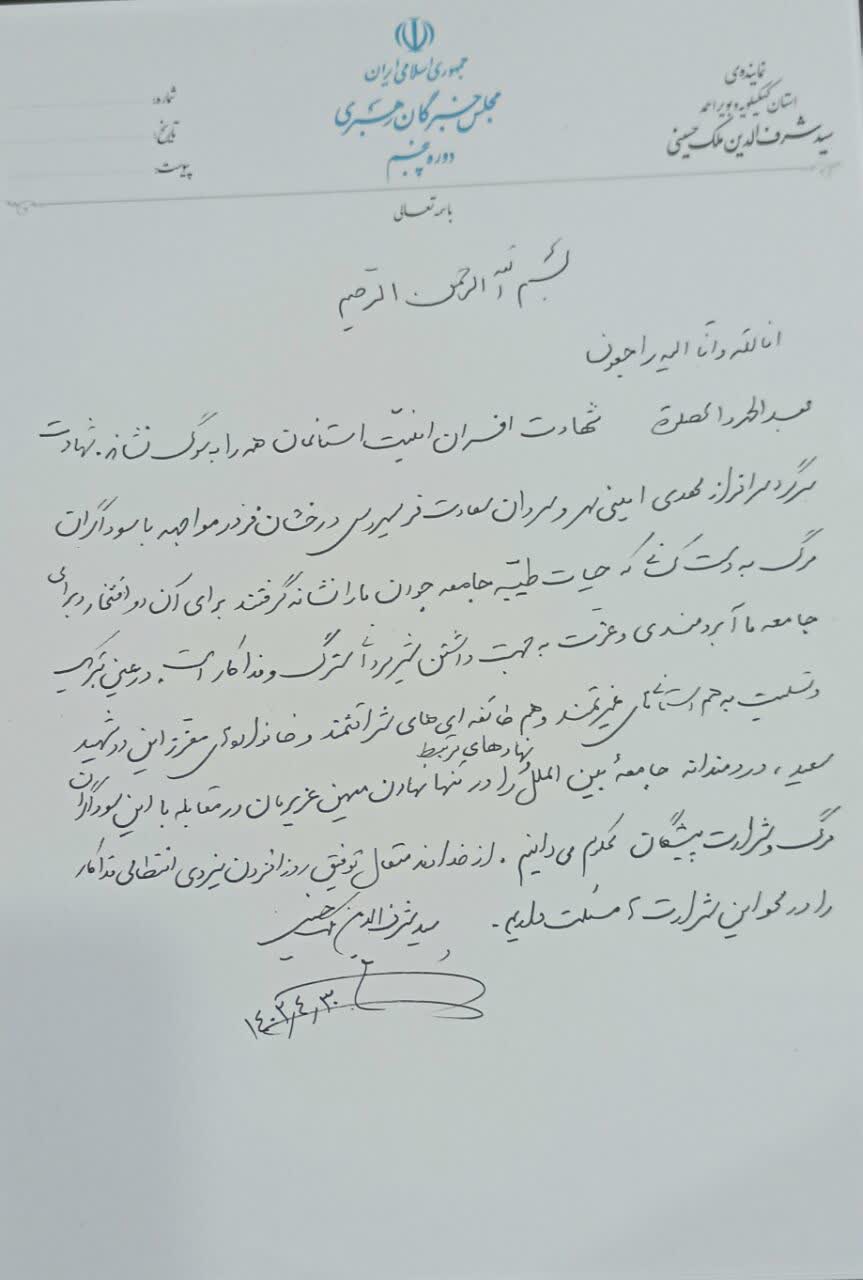 جمهوری اسلامی ایران
مجلس خبرگان رهبری
دوره پنجم
نماینده‌ی
استان کهگیلویه و بویراحمد
سید شرف الدین ملک حسینی
شماره:
تاریخ:
پیوست:
باسمه تعالی
بسم الله الرحمن الرحیم
انا لله و انا الیه راجعون
بعد الحمد و الصلوة شهادت افسران امنیت استانمان همه را به سوگ نشاند. شهادت
سرگرد سرافراز مهدی امینی مهر و سروان سعادت فر درخشان فر در مواجهه با سوداگران
مرگ به دست کسانی که حیات طیبه جامعه جوان ما را نشانه گرفتند برای آن دو افتخار و برای
جامعه ما آبرومندی و عزت به جهت داشتن شیرمردانی سترگ و فداکار است. در عین تبریک
و تسلیت به هم استانی های غیرتمند و هم طائفه ای های شرافتمند و خانواده های معزز این دو شهید
سعید، دردمندانه جامعهٔ بین الملل و نهادهای مرتبط را در تنها نهادن میهن عزیزمان در مقابله با این سوداگران
مرگ و شرارت پیشگان محکوم می دانیم. از خداوند متعال توفیق روز افزون نیروی انتظامی فداکار
را در محو این شرارت ها مسئلت داریم.
سید شرف الدین ملک حسینی
۱۴۰۳,۴,۳۰